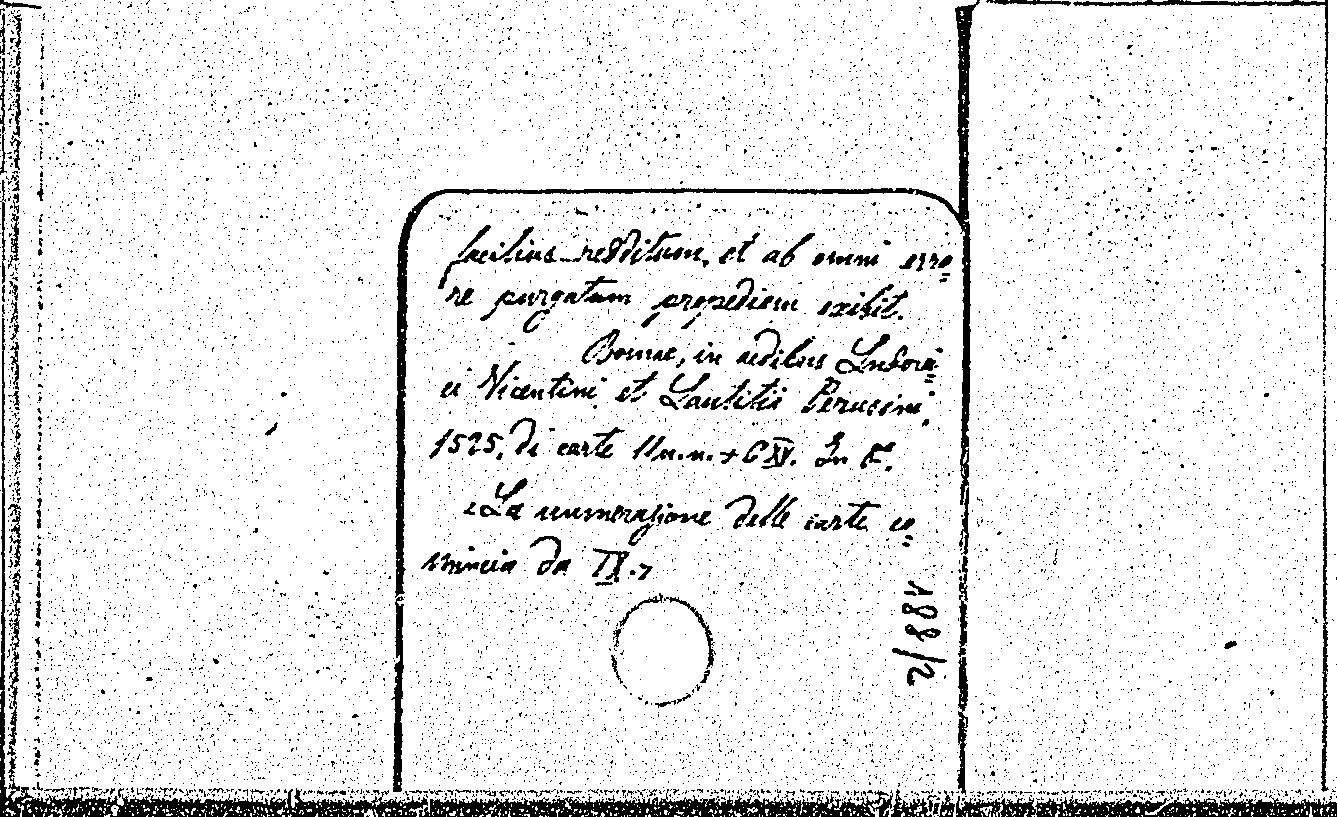 facilius redditum, et ab omni erro=
re purgatum propediem exibit.
Romae, in aedibus Ludovi=
ci Vicentini et Lautitii Perusini,
1525, di carte 11 n.n. + CXV. In 8°.
La numerazione delle carte co=
mincia da IX.
2/881